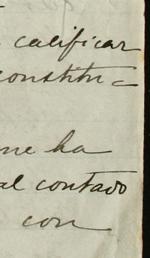 calificar
constitu=
me ha
al contado
con